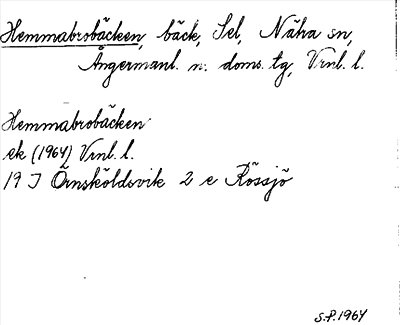 Hemmabrobäcken, bäck, Sel, Näha sn,
Ångermanl. n. doms. tg, Vrnl. l.
Hemmabrobäcken
ek (1964) Vrnl. l.
19 J Örnsköldsvik 2 e Rössjö
S.P. 1964